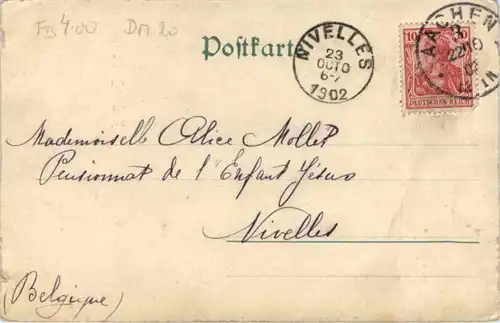 FB 4.00 DM 20
Postkarte
NIVELLES
23
OCTO
6-7
1902
AACHEN
22/10
02
10
DEUTSCHES REICH
Mademoiselle Alice Mollet
Pensionnat de l'Enfant Jésus
Nivelles
(Belgique)